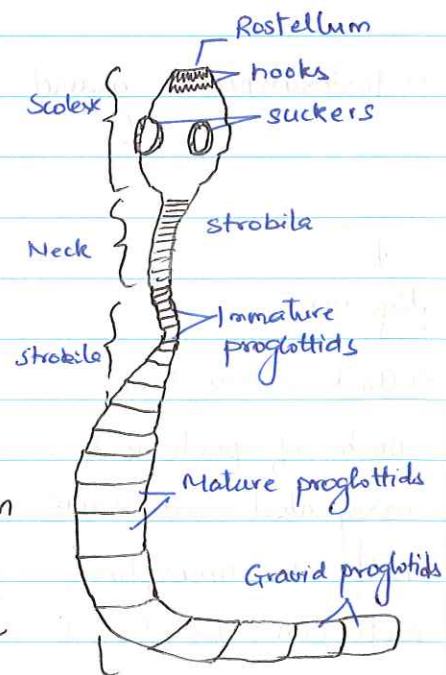 Rostellum
hooks
Scolex
suckers
strobila
Neck
Immature
proglottids
Strobila
Mature proglottids
n
Gravid proglotids